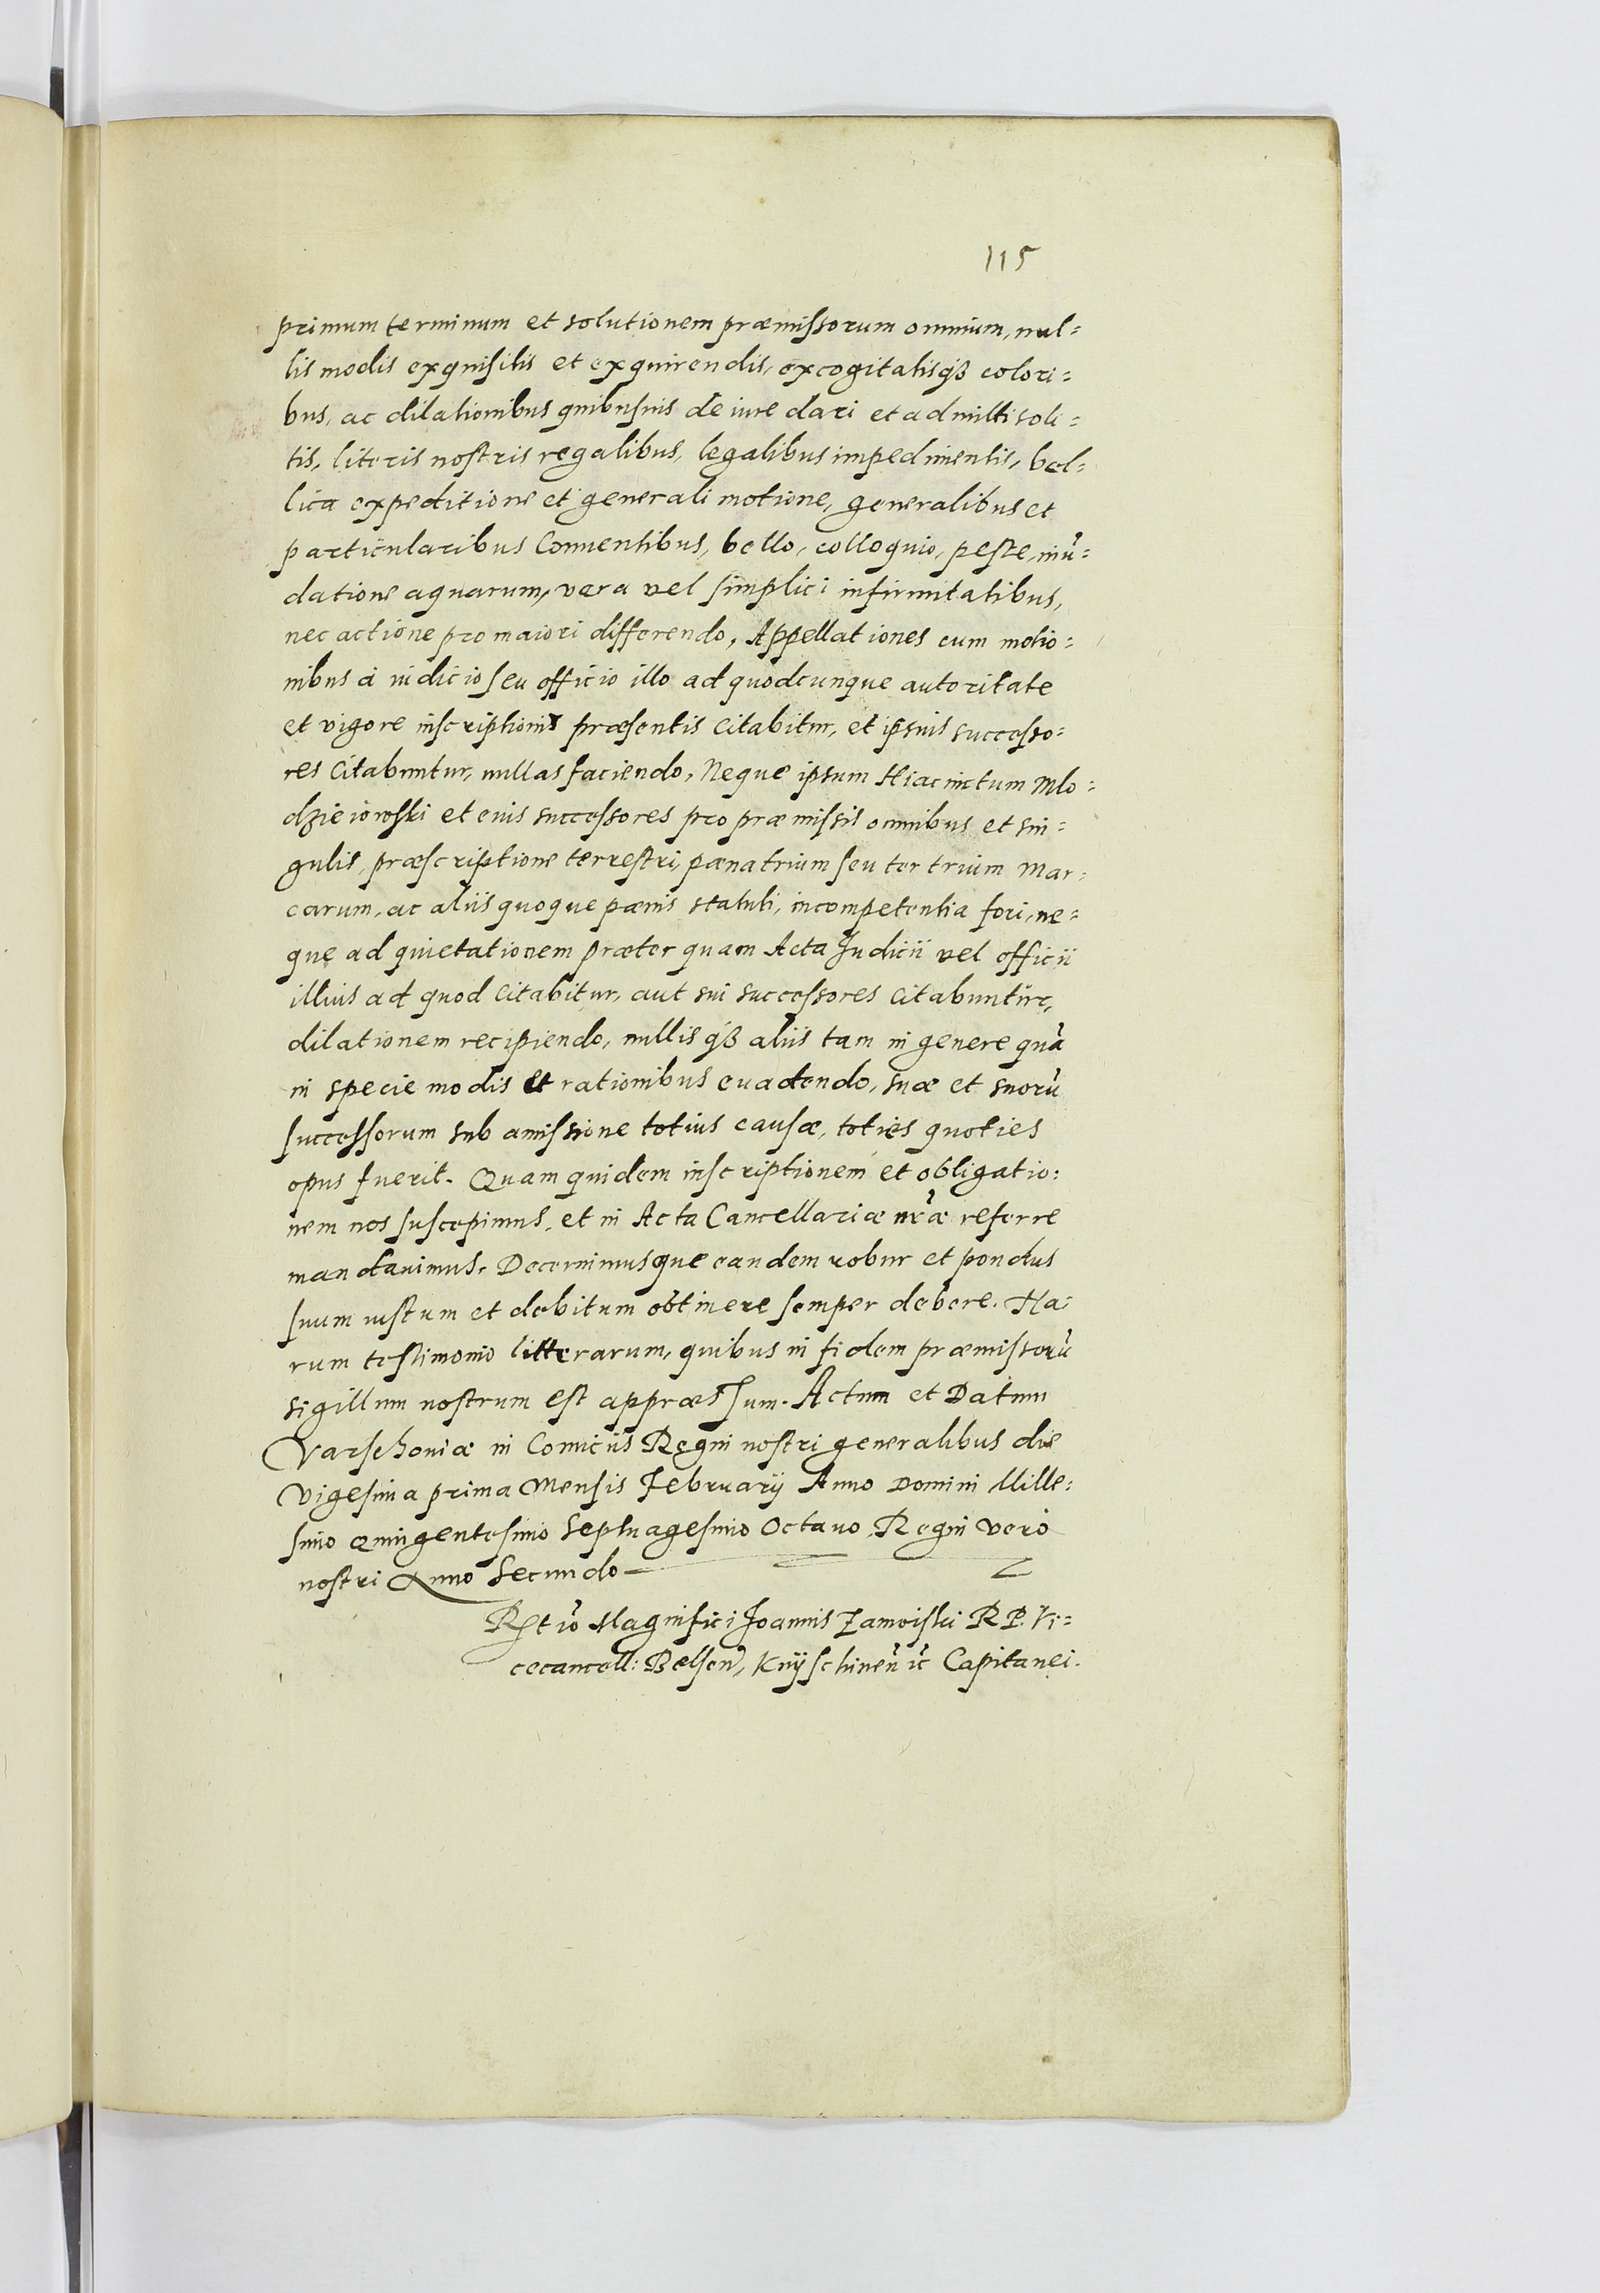 115
primum terminum et solutionem præmissorum omnium, nul=
lis modis exquisitis et exquirendis, excogitatisq3 colori=
bus, ac dilationibus quibusuis de iure dari et admitti soli=
tis, literis nostris regalibus, legalibus impedimentis, bel=
lica expeditione et generali motione, generalibus et
particularibus Conuentibus, bello, colloquio, peste, inũ=
datione aquarum, vera vel simplici infirmitatibus,
nec actione pro maiori differendo, Appellationes cum motio=
nibus à iudicio seu officio illo ad quodcunque autoritate
et vigore inscriptionis præsentis citabitur, et ipsius successo=
res citabuntur, nullas faciendo, Neque ipsum Hiacinctum Mlo=
dzieiowski et eius successores pro præmissis omnibus et sin=
gulis, præscriptione terrestri, pæna trium seu ter trium mar=
carum, ac aliis quoque pænis statuti, incompetentia fori, ne=
que ad quietationem præter quam Acta Judicii vel officii
illius ad quod citabitur, aut sui successores citabuntur,
dilationem recipiendo, nullisq3 aliis tam in genere quã
in specie modis et rationibus euadendo, suæ et suorũ
successorum sub amissione totius causæ, toties quoties
opus fuerit. Quam quidem inscriptionem et obligatio=
nem nos suscepimus, et in Acta Cancellariæ nr̃æ referre
mandauimus. Decernimusque eandem robur et pondus
suum iustum et debitum obtinere semper debere. Ha=
rum testimonio litterarum, quibus in fidem præmissorũ
sigillum nostrum est appræssum. Actum et Datum
Varschouiæ in Comiciis Regni nostri generalibus die
vigesima prima Mensis Februarij Anno Domini Mille=
simo Quingentesimo Septuagesimo Octauo, Regni vero
nostri Anno Secundo
Rtio Magnifici Joannis Zamoiski R. P. Vi=
cecancell: Belsen, Knyschinen̄ ic̄ Capitanei.